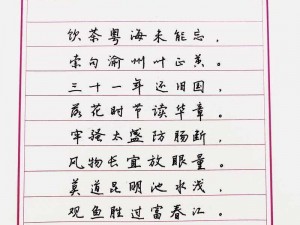 饮茶粤海未能忘，
索句渝州叶正黄。
三十一年还旧国，
落花时节读华章。
牢骚太盛防肠断，
风物长宜放眼量。
莫道昆明池水浅，
观鱼胜过富春江。